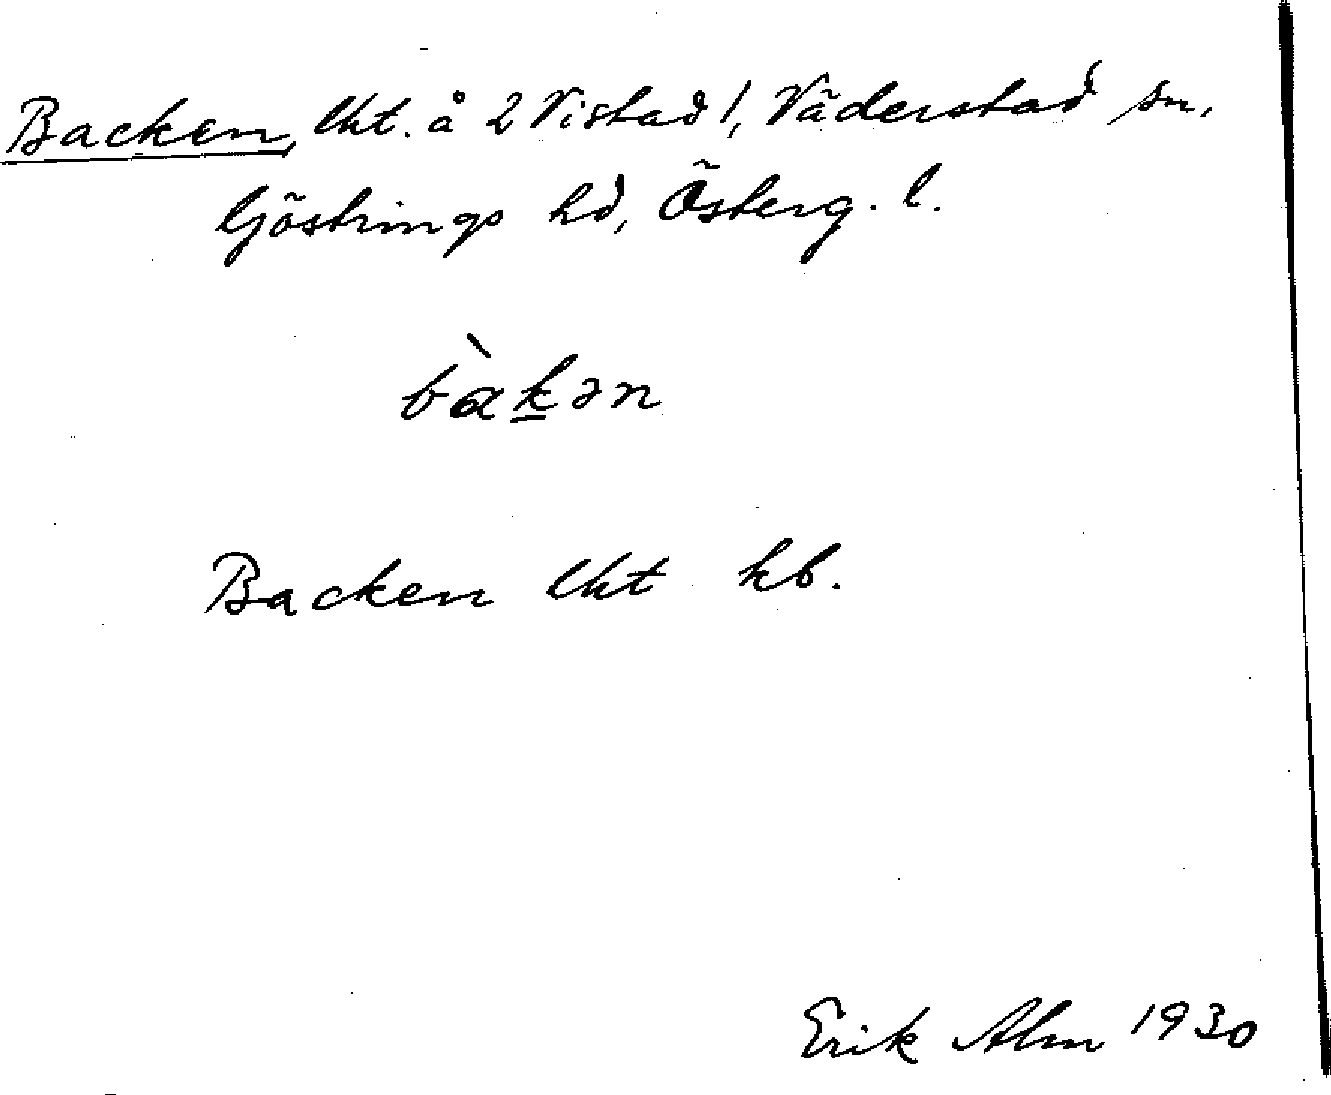 Backen, lht. å 2 Vistad 1, Väderstad sn,
Göstrings hd, Österg. l.
bàk̲ən
Backen lht kb.
Erik Alm 1930